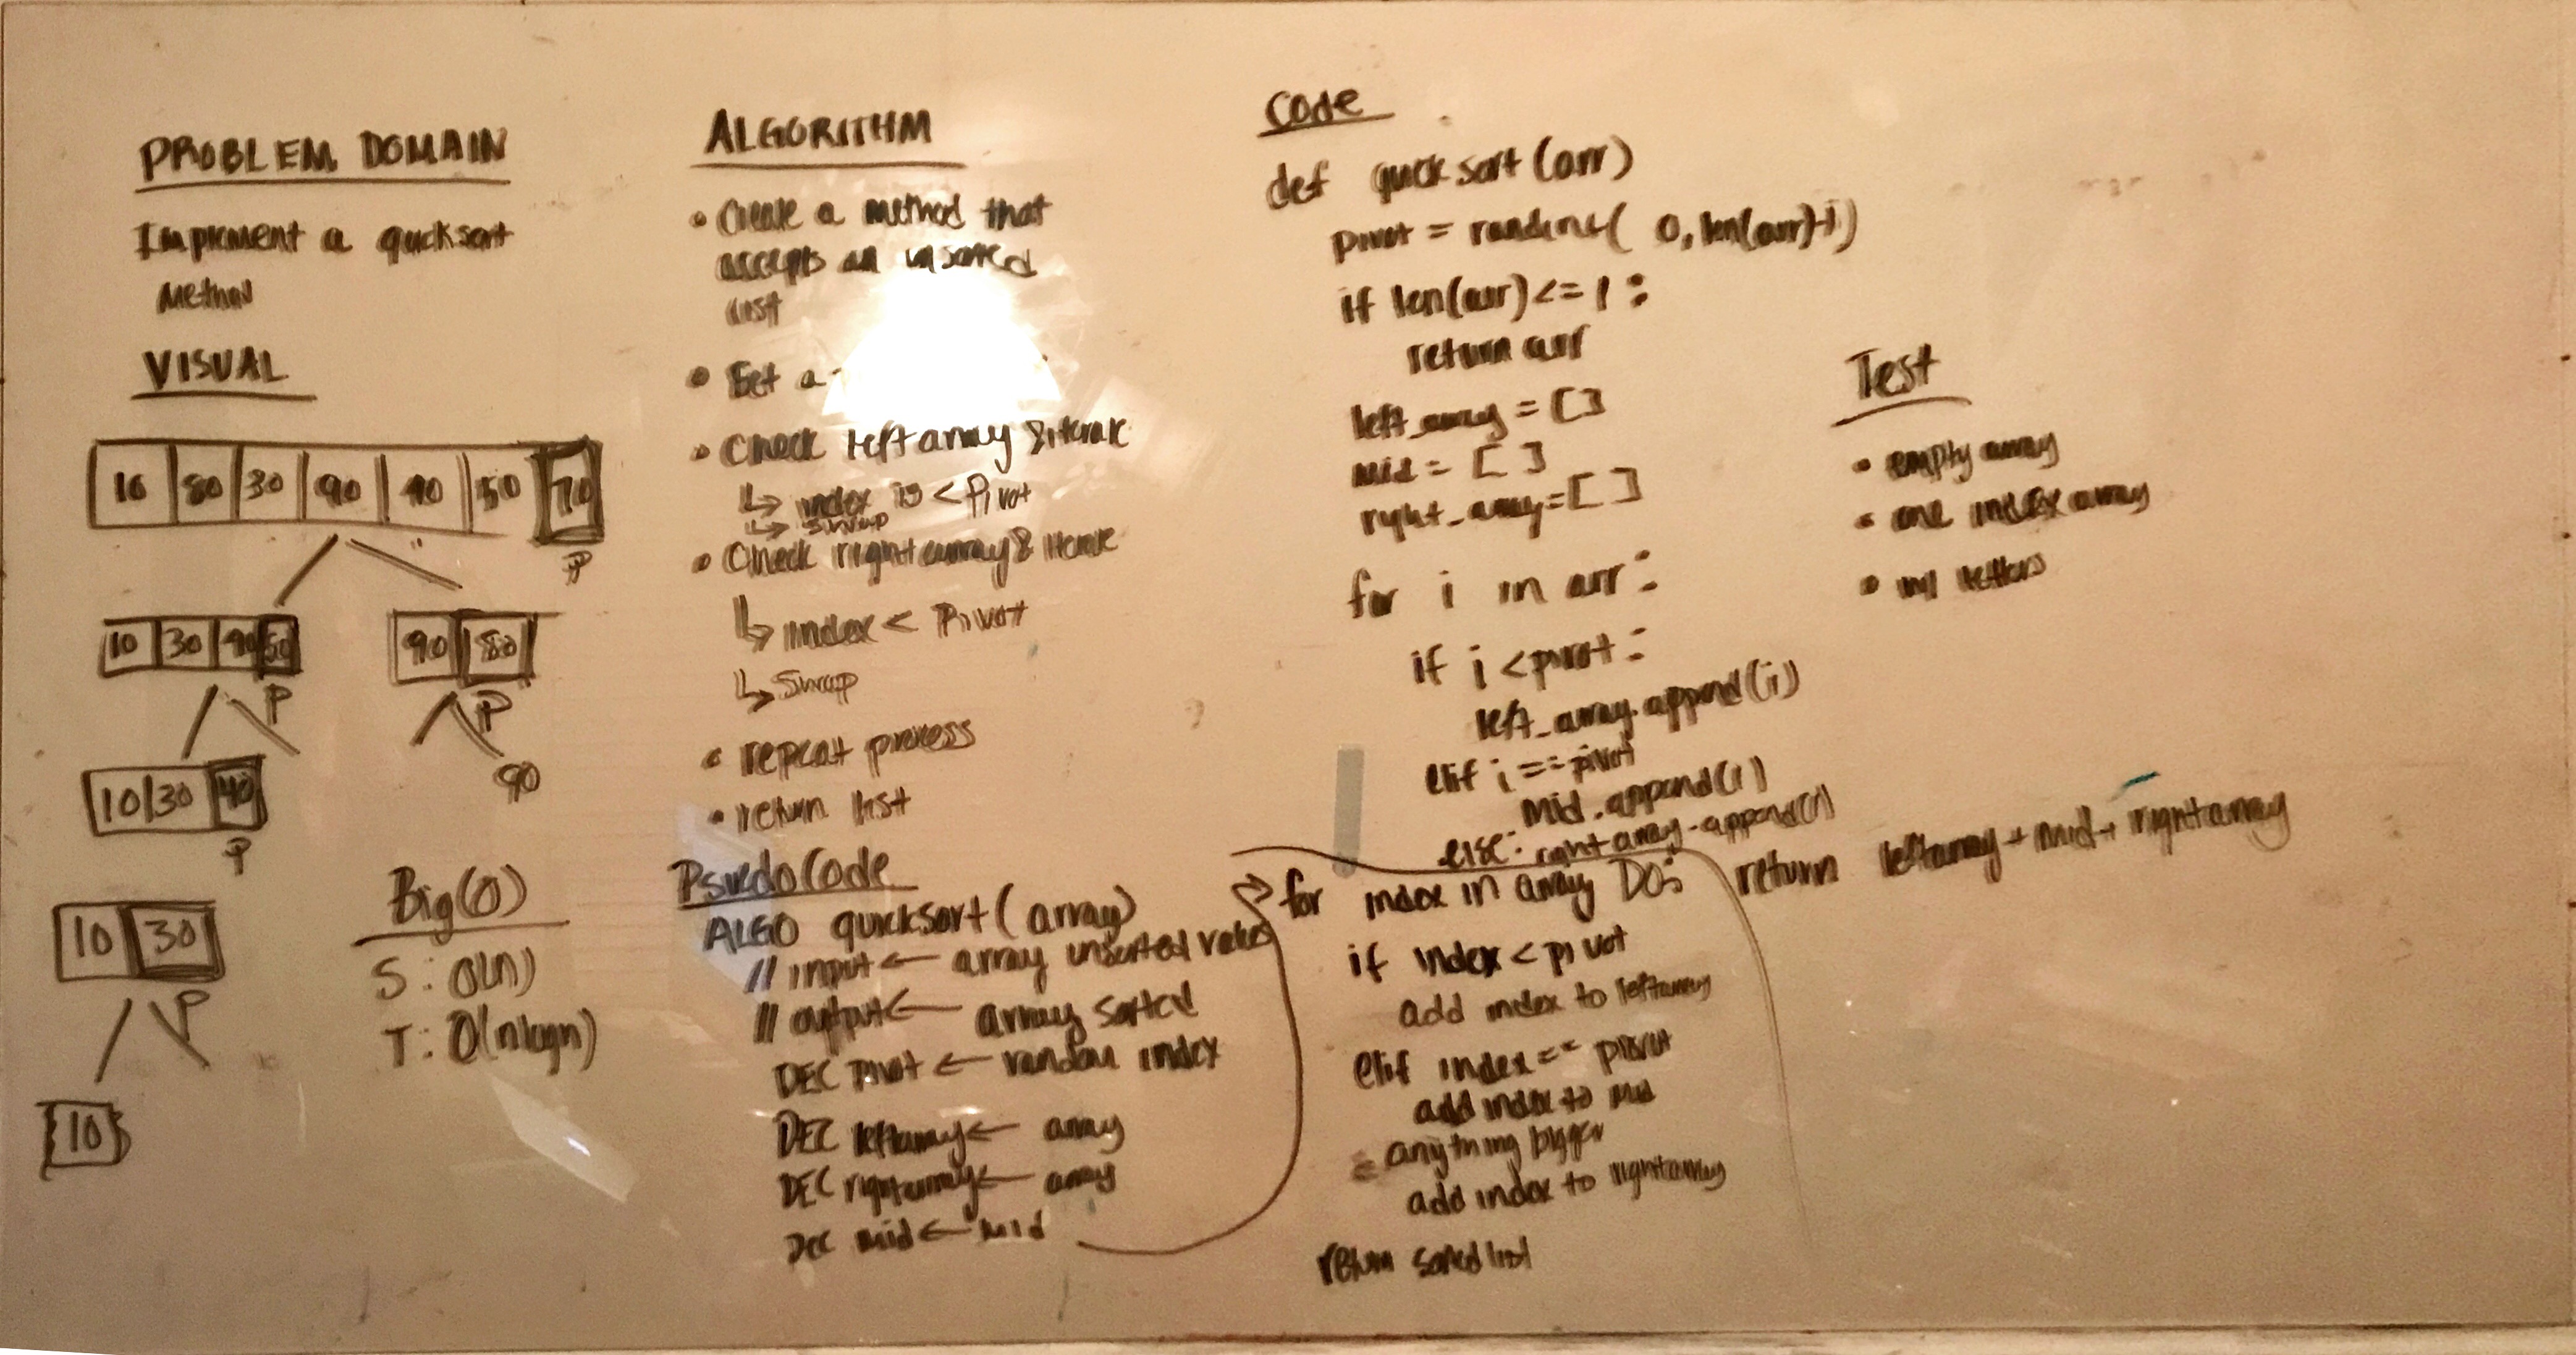 PROBLEM DOMAIN
Implement a quicksort
Method
VISUAL
10 80 30 90 40 50 70
P
10 30 40 50
P
90 80
P
90
10 30 40
P
10 30
P
10
Big(O)
S: O(n)
T: O(nlogn)
ALGORITHM
• Create a method that
accepts an unsorted
list
• Set a
• Check left array & iterate
↳ index is < Pivot
↳ swap
• Check right array & iterate
↳ index < Pivot
↳ Swap
• repeat process
• return list
PsuedoCode
ALGO quicksort(array)
// input ← array unsorted
// output ← array sorted
DEC pivot ← random index
DEC leftarray ← array
DEC rightarray ← array
DEC mid ← mid
for index in array DO:
if index < pivot
add index to leftarray
elif index == pivot
add index to mid
anything bigger
add index to rightarray
return sorted list
Code
def quicksort(arr)
pivot = randint( 0, len(arr)-1)
if len(arr) <= 1 :
return arr
left_array = []
mid = [ ]
right_array = [ ]
for i in arr :
if i < pivot :
left_array.append(i)
elif i == pivot
mid.append(i)
else: right_array.append(i)
return leftarray + mid + rightarray
Test
• empty array
• one index array
• letters